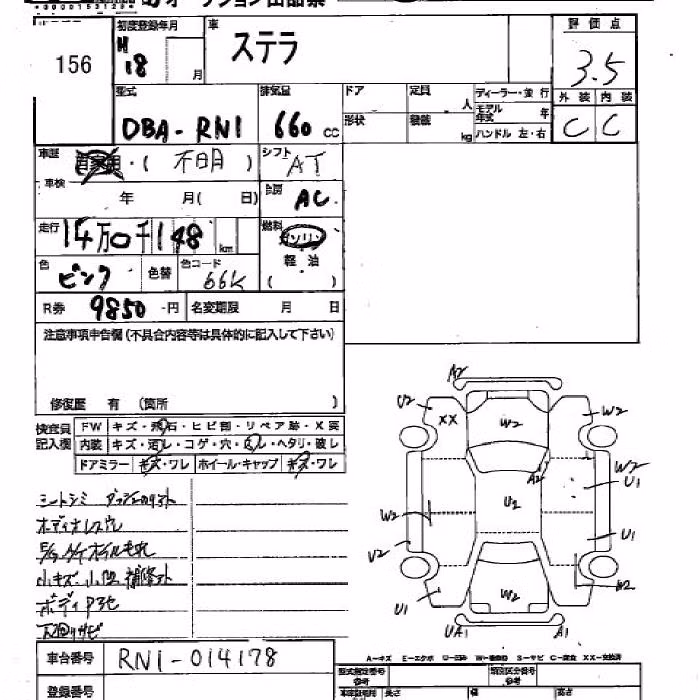 オークション出品票
156
初度登録年月
H
18
月
車
ステラ
評価点
3.5
外装 内装
C C
型式
DBA-RN1
排気量
660 cc
ドア
定員
人
ディーラー・並行
形状
積載
kg
モデル年式
年
ハンドル 左・右
車歴
自家用・( 不明 )
シフト
AT
車検
年 月( 日)
冷房
AC
走行
14万0千148 km
燃料
ガソリン
軽油
( )
色
ピンク
色替
色コード
66K
R券 9850 -円
名変期限 月 日
注意事項申告欄(不具合内容等は具体的に記入して下さい)
修復歴 有 (箇所 )
検査員
記入欄
FW キズ・飛石・ヒビ割・リペア跡・X要
内装 キズ・汚レ・コゲ・穴・ ・ヘタリ・破レ
ドアミラー キズ・ワレ ホイール・キャップ キズ・ワレ
シートシミ
オーディオレス
オイルもれ
小キズ・小凹 補修
下回りサビ
A2
U2
XX
W2
W2
W2
U1
A2
U2
W2
U2
U1
W2
U1
UA1
A1
A-キズ E-エクボ U-凹み W-補修跡 S-サビ C-腐食 XX-交換済
車台番号
RN1-014178
登録番号
型式指定番号
参考
類別区分番号
参考
長さ 幅 高さ